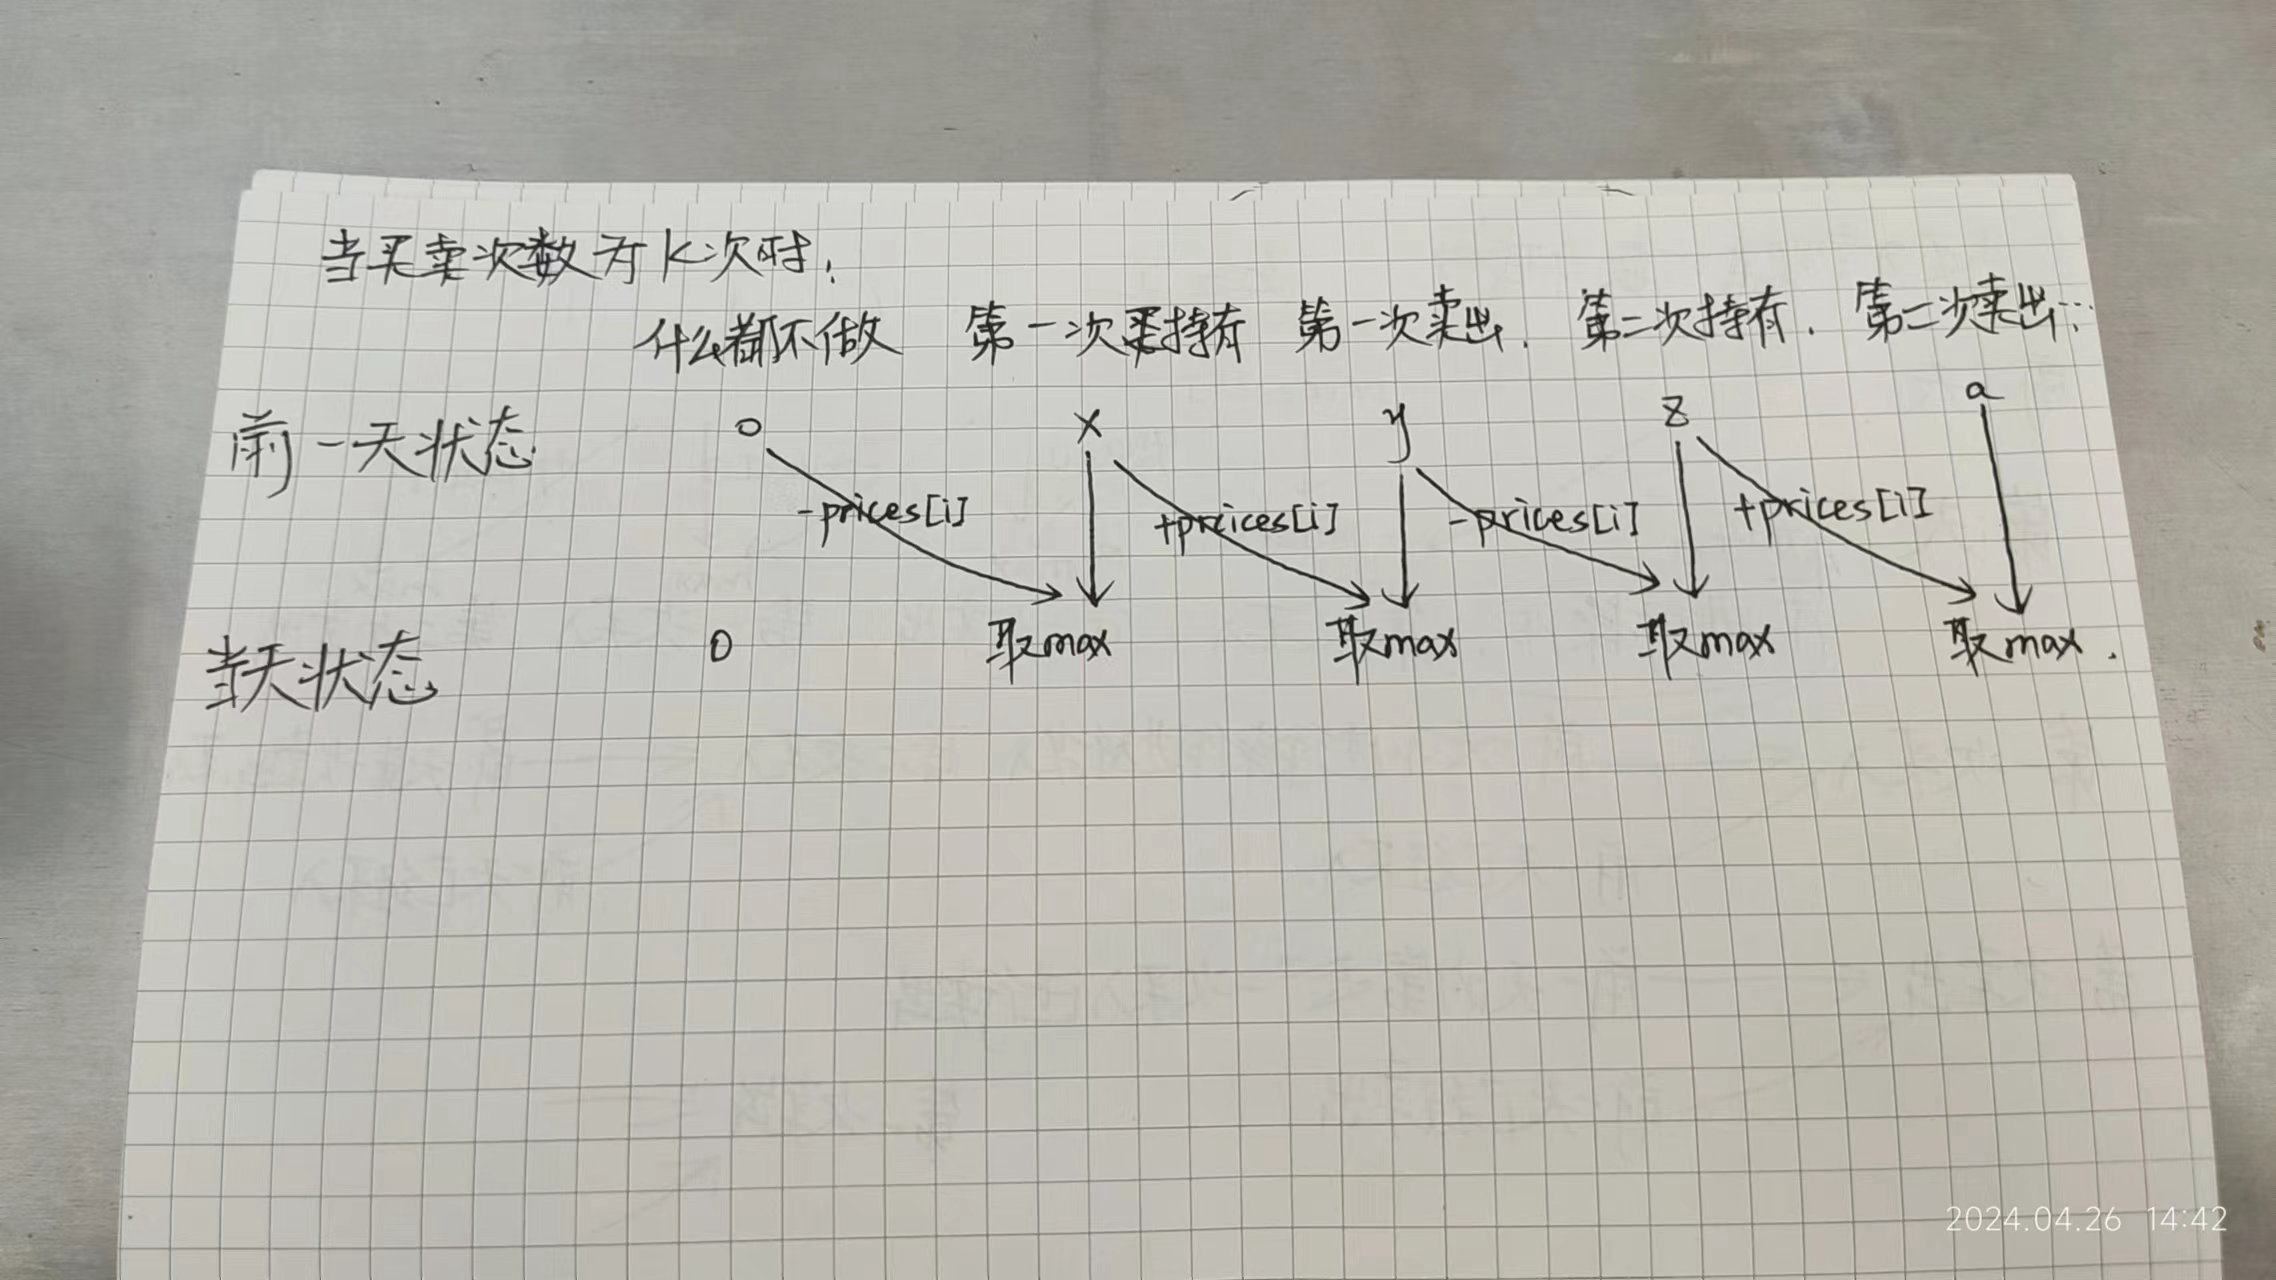 当买卖次数为K次时：
什么都不做 第一次持有 第一次卖出. 第二次持有. 第二次卖出…
前一天状态 0 x y z a
-prices[i] +prices[i] -prices[i] +prices[i]
当天状态 0 取max 取max 取max 取max.
2024.04.26 14:42